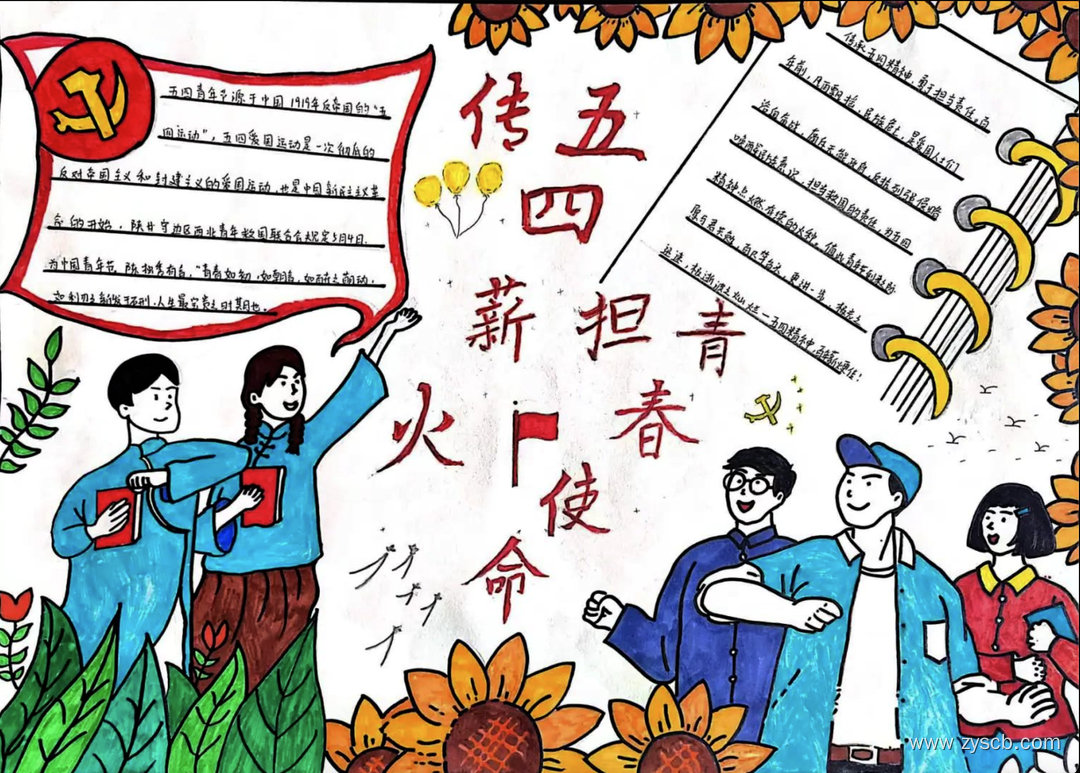 五四青年节源于中国1919年反帝国的“五
四运动”，五四爱国运动是一次彻底的
反对帝国主义和封建主义的爱国运动，也是中国新民主主义革
命的开始，陕甘宁边区西北青年救国联合会规定5月4日
为中国青年节。陈独秀有言，“青春如初，如朝日，如百卉之萌动，
如利刃之新发于硎，人生最宝贵之时期也。
传五四
薪火
担青春
使命
传承五四精神，勇于担当责任，百
年前，风雨飘摇，民族危亡，是爱国人士们
浴血奋战，反抗列强侵略
唤醒民族意识，担当救国的责任，为
精神点燃的火种。
愿与君共勉，百尺竿头，更进一步，
五四精神，百年薪火
www.zyscb.com